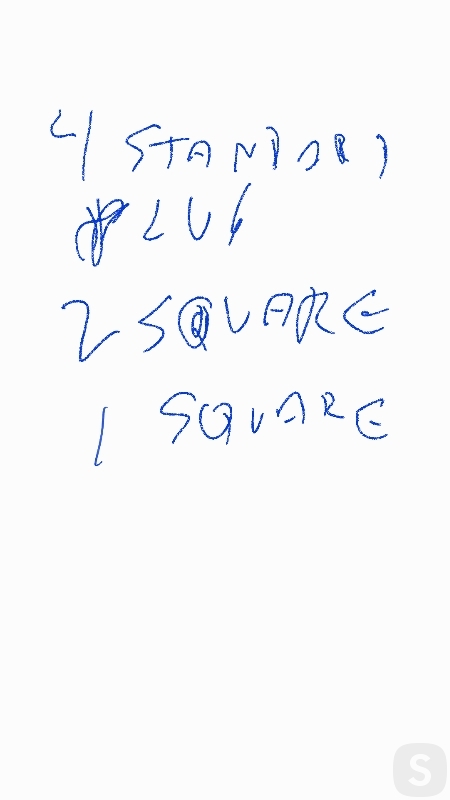 4 STANDARD
PLUG
2 SQUARE
1 SQUARE
S